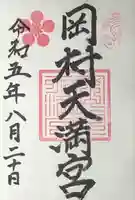 岡村天満宮
令和五年八月二十日